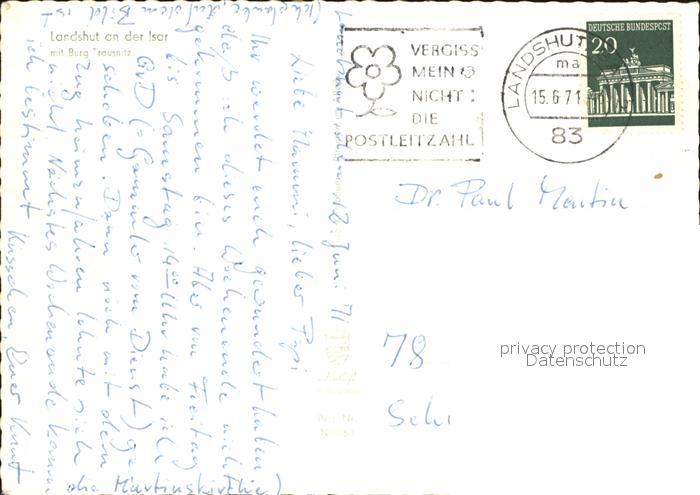 Landshut an der Isar
mit Burg Trausnitz
VERGISS
MEIN
NICHT:
DIE
POSTLEITZAHL
LANDSHUT
ma
15.6.71
83
DEUTSCHE BUNDESPOST
20
Dr. Paul Martin
78
privacy protection
Datenschutz
Juni 71
Liebe Mammi, lieber Papi
Ihr werdet euch gewundert haben
daß ich dieses Wochenende nicht
gekommen bin. Aber von Freitag
bis Samstag 14 00 Uhr habe ich
GvD (= Gammler vom Dienst) ge-
schoben. Dann noch mit dem
Zug heimzufahren lohnte sich
nicht. Nächstes Wochenende komme
ich bestimmt
Küsschen Euer Knut
auf dem Bild ist
die Martinskirche)